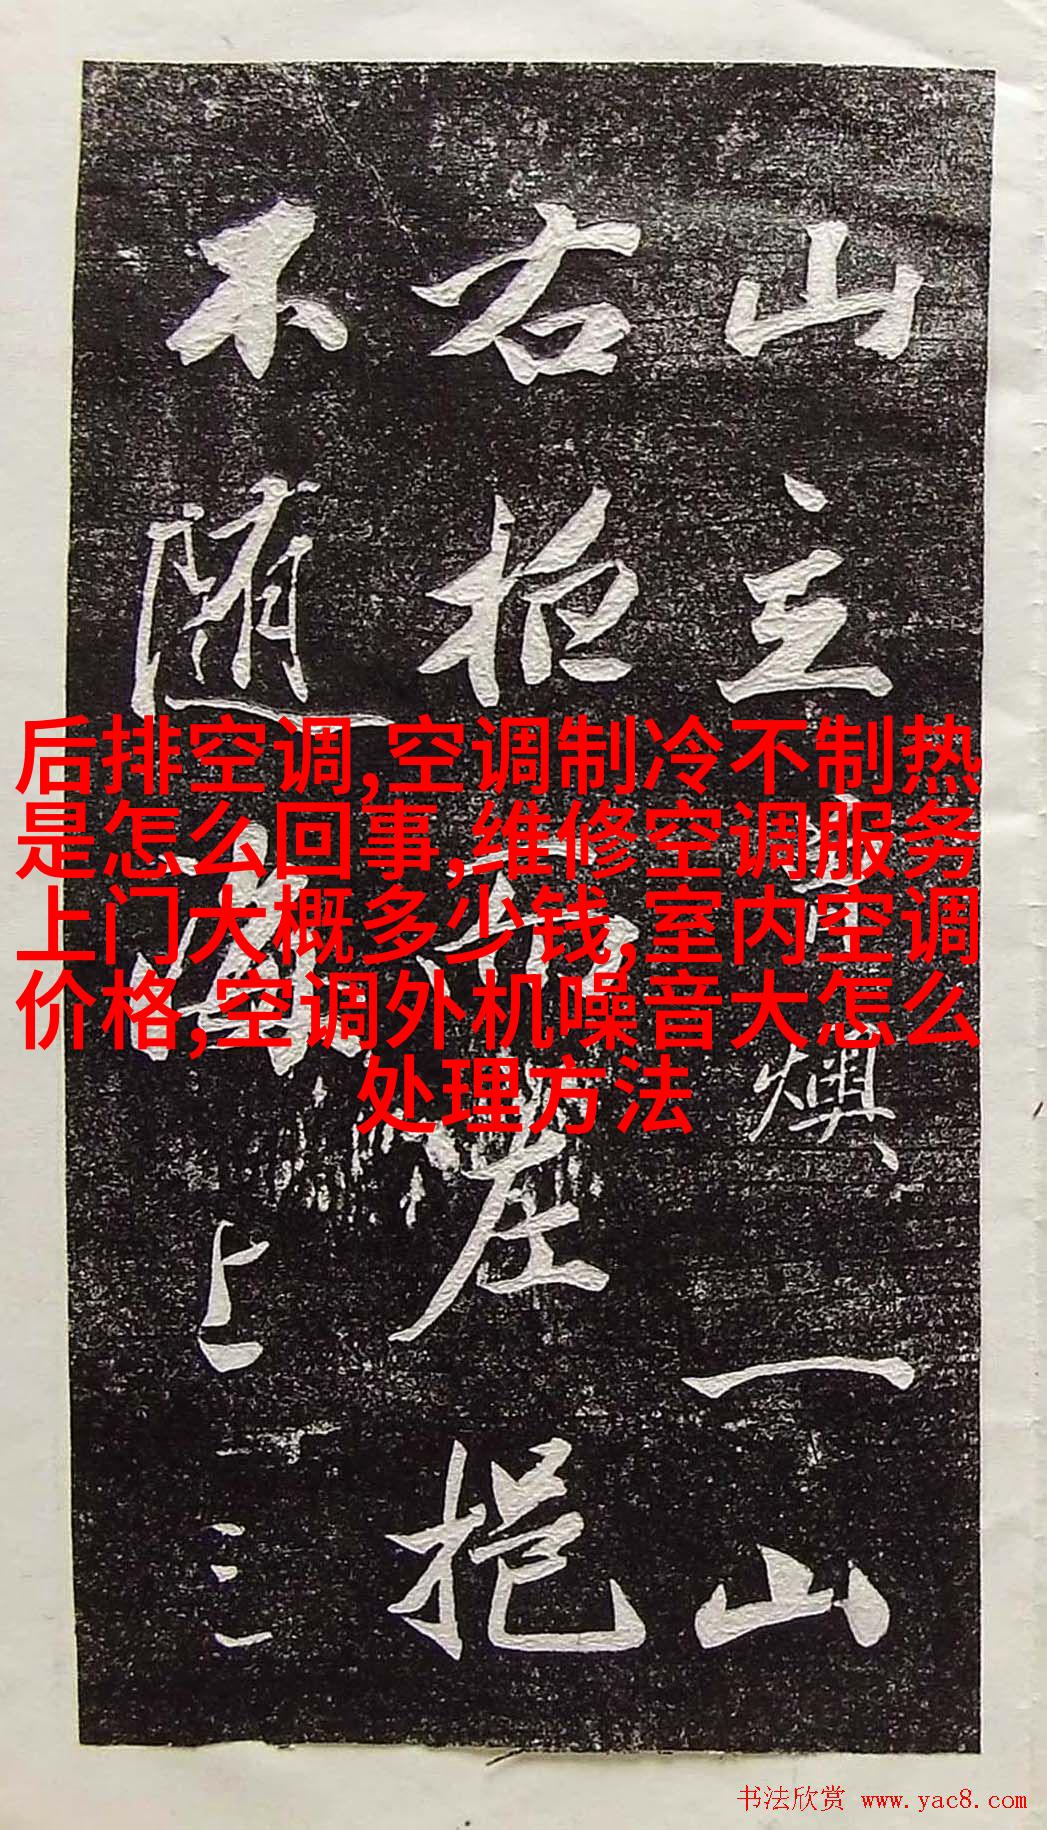 山主
一山
右极
左挹
不随
上三
后排空调,空调制冷不制热
是怎么回事,维修空调服务
上门大概多少钱,室内空调
价格,空调外机噪音大怎么
处理方法
书法欣赏 www.yac8.com